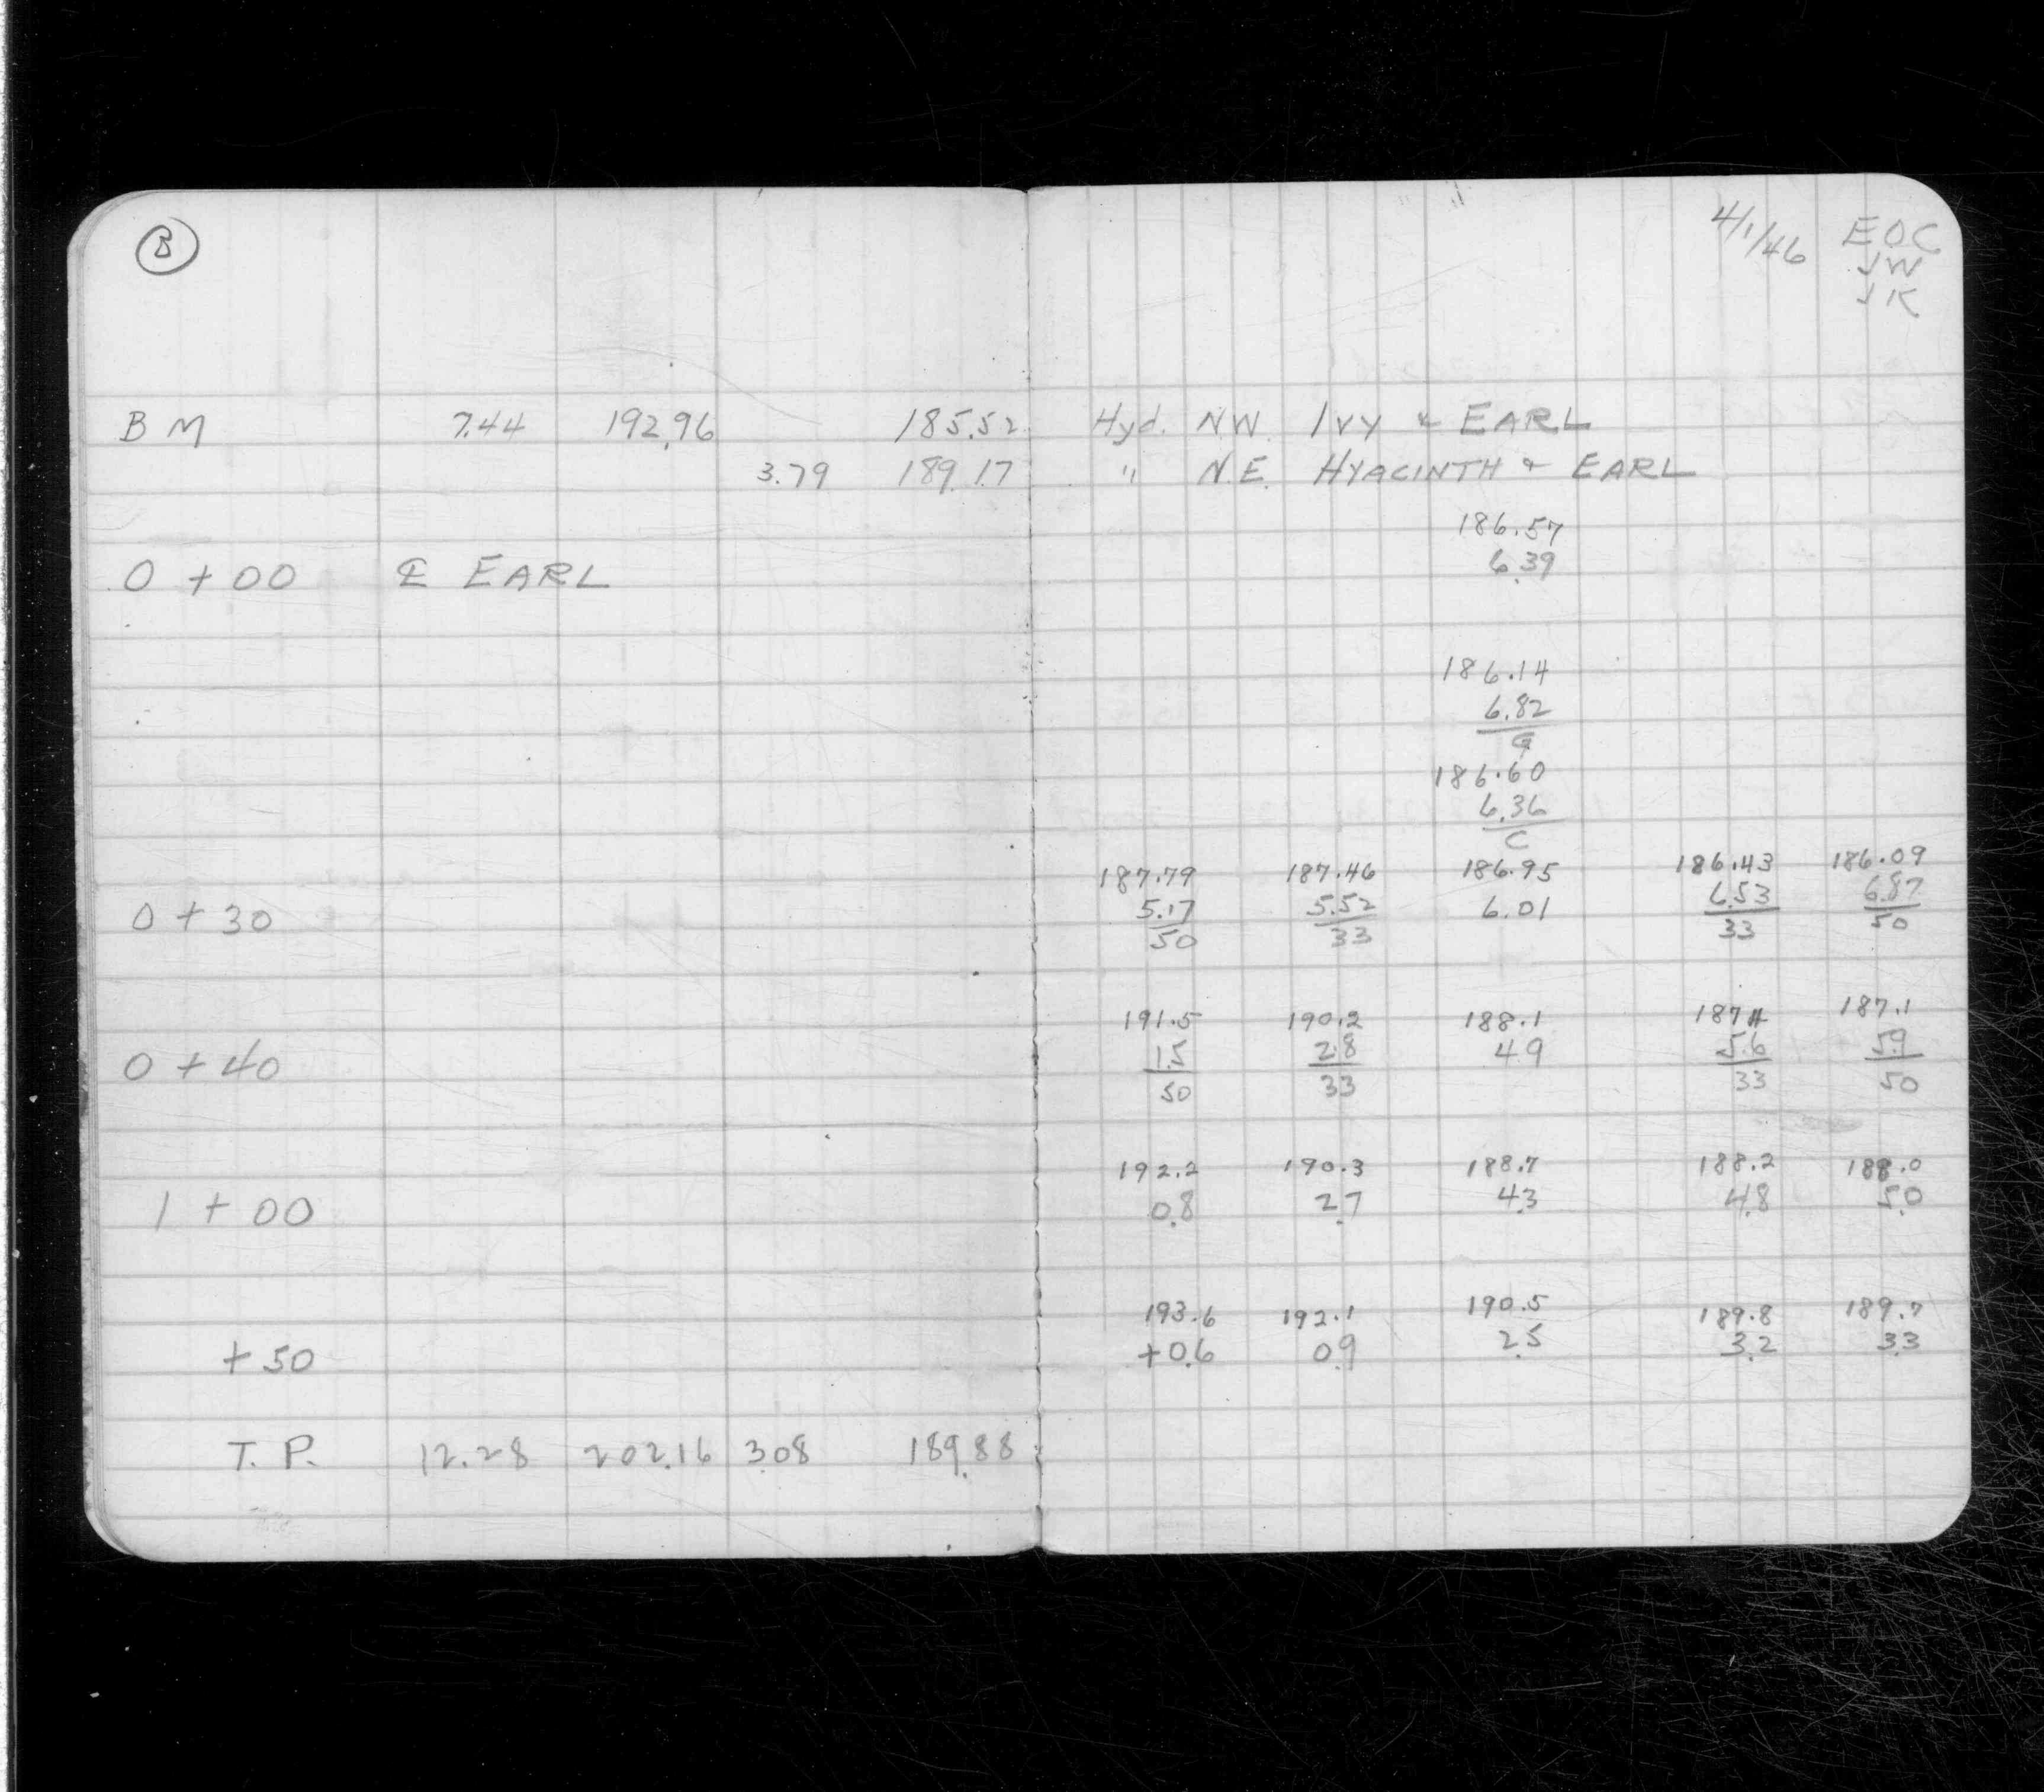 B
4/1/46 EOC
JW
JK
BM 7.44 192.96 185.52 Hyd. N.W. IVY & EARL
3.79 189.17 " N.E. HYACINTH & EARL
186.57
0+00 ℄ EARL 6.39
186.14
6.82
G
186.60
6.36
C
187.79 187.46 186.95 186.43 186.09
0+30 5.17 5.52 6.01 6.53 6.87
50 33 33 50
191.5 190.2 188.1 187.4 187.1
0+40 1.5 2.8 4.9 5.6 5.9
50 33 33 50
192.2 190.3 188.7 188.2 188.0
1+00 0.8 2.7 4.3 4.8 5.0
193.6 192.1 190.5 189.8 189.7
+50 +0.6 0.9 2.5 3.2 3.3
T.P. 12.28 202.16 3.08 189.88